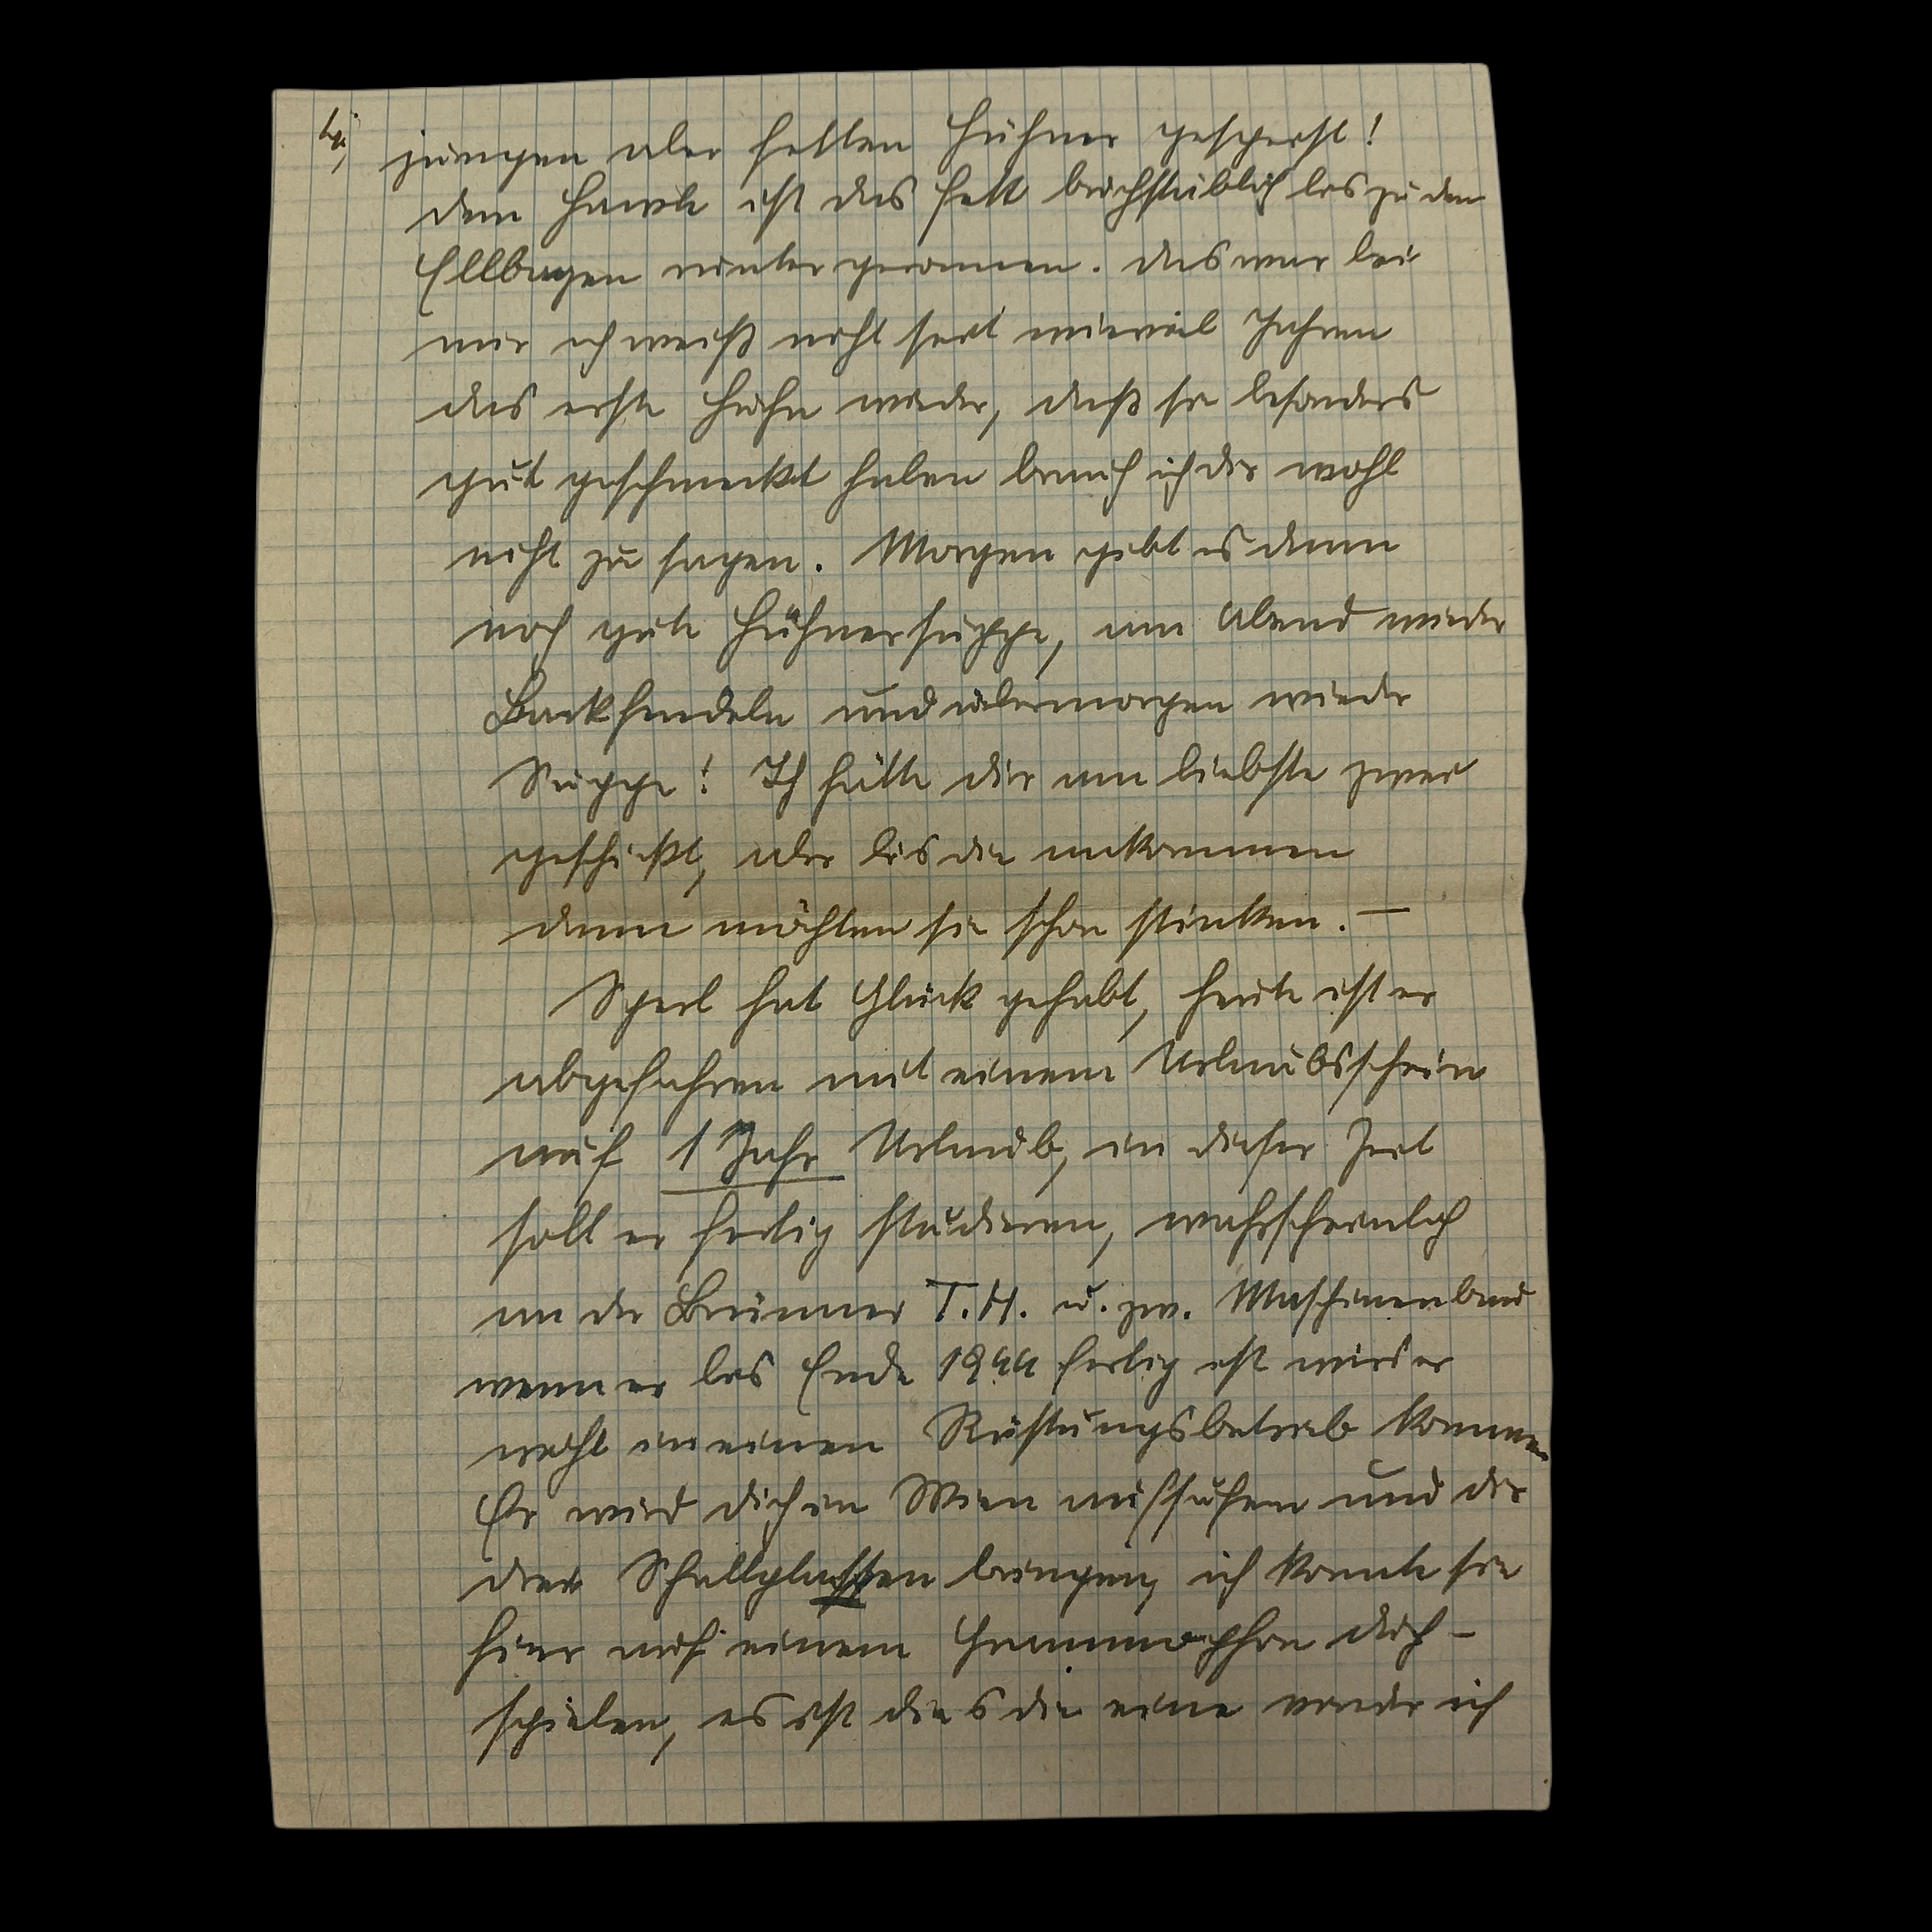 jungen aber fetten Hühner gesperst!
dem Hawle ist das Fett buchstäblich bis zu den
Ellbogen runter geronnen. Das war bei
mir ich weiß nicht seit wieviel Jahren
das erste Huhn wieder, daß sie besonders
gut geschmeckt haben brauch ich dir wohl
nicht zu sagen. Morgen gibt es dann
noch gute Hühnersuppe, am Abend wieder
Backhendeln und übermorgen wieder
Suppe! Ich hätte dir am liebste zwei
geschickt, aber bis die ankommen
dann möchten sie schon stinken. —
Sperl hat Glück gehabt, heute ist er
abgefahren mit einem Urlaubsschein
auf 1 Jahr Urlaub, in dieser Zeit
soll er fertig studieren, wahrscheinlich
an der Brünner T.H. u. zw. Maschinenbau
wenn er bis Ende 1944 fertig ist wird er
wohl in einen Rüstungsbetrieb kommen
Er wird dich in Wien aufsuchen und dir
drei Schallplatten bringen, ich konnte sie
hier auf einem Grammophon dich-
spielen, es ist dies die eine von der ich